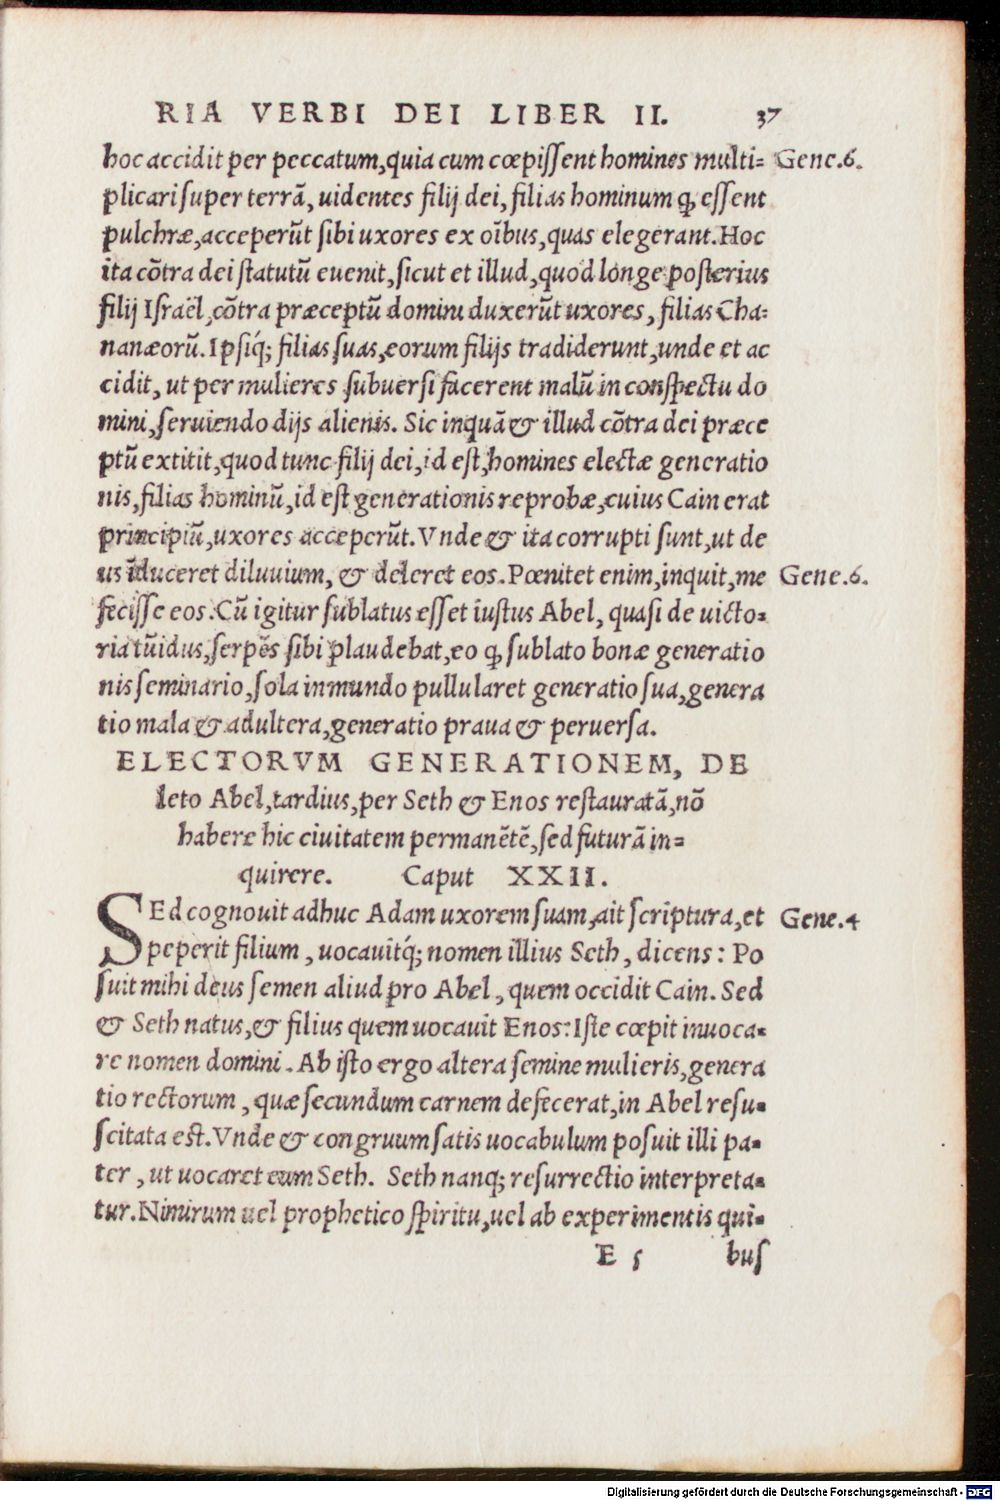 RIA VERBI DEI LIBER II. 37
hoc accidit per peccatum, quia cum cœpissent homines multi= Gene.6.
plicari super terrā, uidentes filij dei, filias hominum ꝙ essent
pulchræ, acceperūt sibi uxores ex oībus, quas elegerant. Hoc
ita cōtra dei statutū euenit, sicut et illud, quod longe posterius
filij Israël, cōtra præceptū domini duxerūt uxores, filias Cha=
nanæorū. Ipsiq́; filias suas, eorum filijs tradiderunt, unde et ac
cidit, ut per mulieres subuersi facerent malū in conspectu do
mini, seruiendo dijs alienis. Sic inquā & illud cōtra dei præce
ptū extitit, quod tunc filij dei, id est, homines electæ generatio
nis, filias hominū, id est generationis reprobæ, cuius Cain erat
principiū, uxores acceperūt. Vnde & ita corrupti sunt, ut de
us īduceret diluuium, & deleret eos. Pœnitet enim, inquit, me Gene.6.
fecisse eos. Cū igitur sublatus esset iustus Abel, quasi de uicto=
ria tūidus, serpēs sibi plaudebat, eo ꝙ sublato bonæ generatio
nis seminario, sola in mundo pullularet generatio sua, genera
tio mala & adultera, generatio praua & peruersa.
ELECTORVM GENERATIONEM, DE
leto Abel, tardius, per Seth & Enos restauratā, nō
habere hic ciuitatem permanētē, sed futurā in=
quirere. Caput XXII.
SEd cognouit adhuc Adam uxorem suam, ait scriptura, et Gene.4
peperit filium, uocauitq́; nomen illius Seth, dicens: Po
suit mihi deus semen aliud pro Abel, quem occidit Cain. Sed
& Seth natus, & filius quem uocauit Enos: Iste cœpit inuoca=
re nomen domini. Ab isto ergo altera semine mulieris, genera
tio rectorum, quæ secundum carnem defecerat, in Abel resu=
scitata est. Vnde & congruum satis uocabulum posuit illi pa=
ter, ut uocaret eum Seth. Seth nanq; resurrectio interpreta=
tur. Nimirum uel prophetico spiritu, uel ab experimentis qui=
E 5 bus
Digitalisierung gefördert durch die Deutsche Forschungsgemeinschaft - DFG